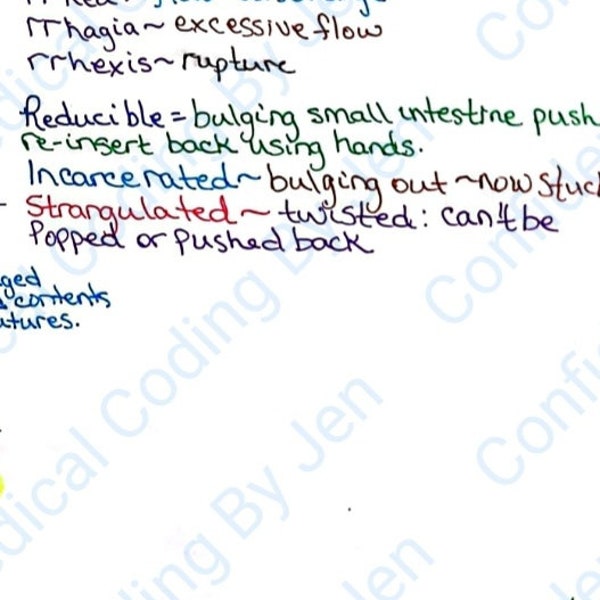 rrhagia~ excessive flow
rrhexis~ rupture
Reducible = bulging small intestine push
re-insert back using hands.
Incarcerated~ bulging out ~now stuc
Strangulated~ twisted: can't be
Popped or pushed back
ged
contents
utures.
Medical Coding By Jen
Confid